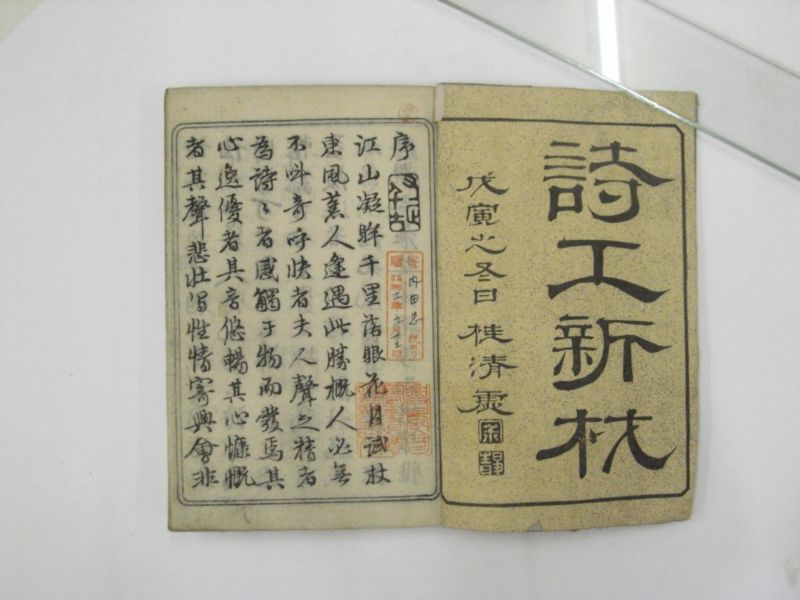 詩工新材
戊寅之冬日 桂清
序
江山凝眸千里落眼花月試杖
東風薰人逢遇此勝概人必無
不叫奇呼快者夫人聲之精者
為詩〻者感觸于物而發焉其
心逸優者其音悠暢其心慷慨
者其聲悲壮写性情寄興會非
寄贈
内田